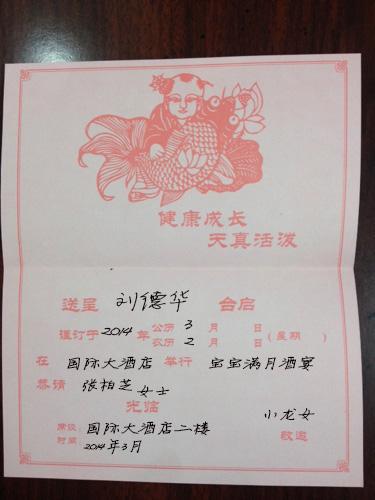 健康成长
天真活泼
送呈 刘德华 台启
谨订于 2014 年 公历 3 月 日 (星期 )
农历 2 月 日
在 国际大酒店 举行 宝宝满月酒宴
恭请 张柏芝 女士
光临
小龙女
席设: 国际大酒店二楼 敬邀
时间: 2014年3月